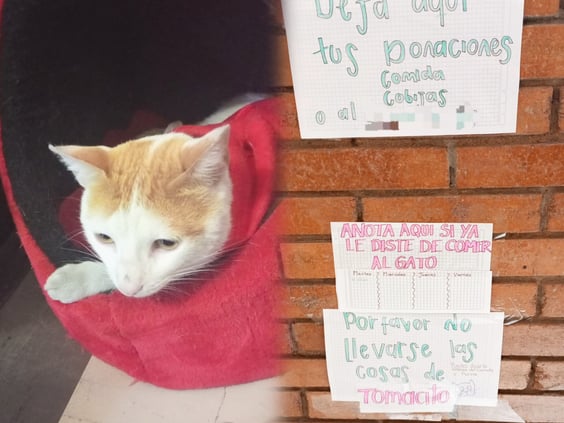 Deja aquí
tus Donaciones
Comida
Cobijas
o al
ANOTA AQUI SI YA
LE DISTE DE COMER
AL GATO
Martes Miercoles Jueves Viernes
Por favor No
llevarse las
cosas de
Tomacito